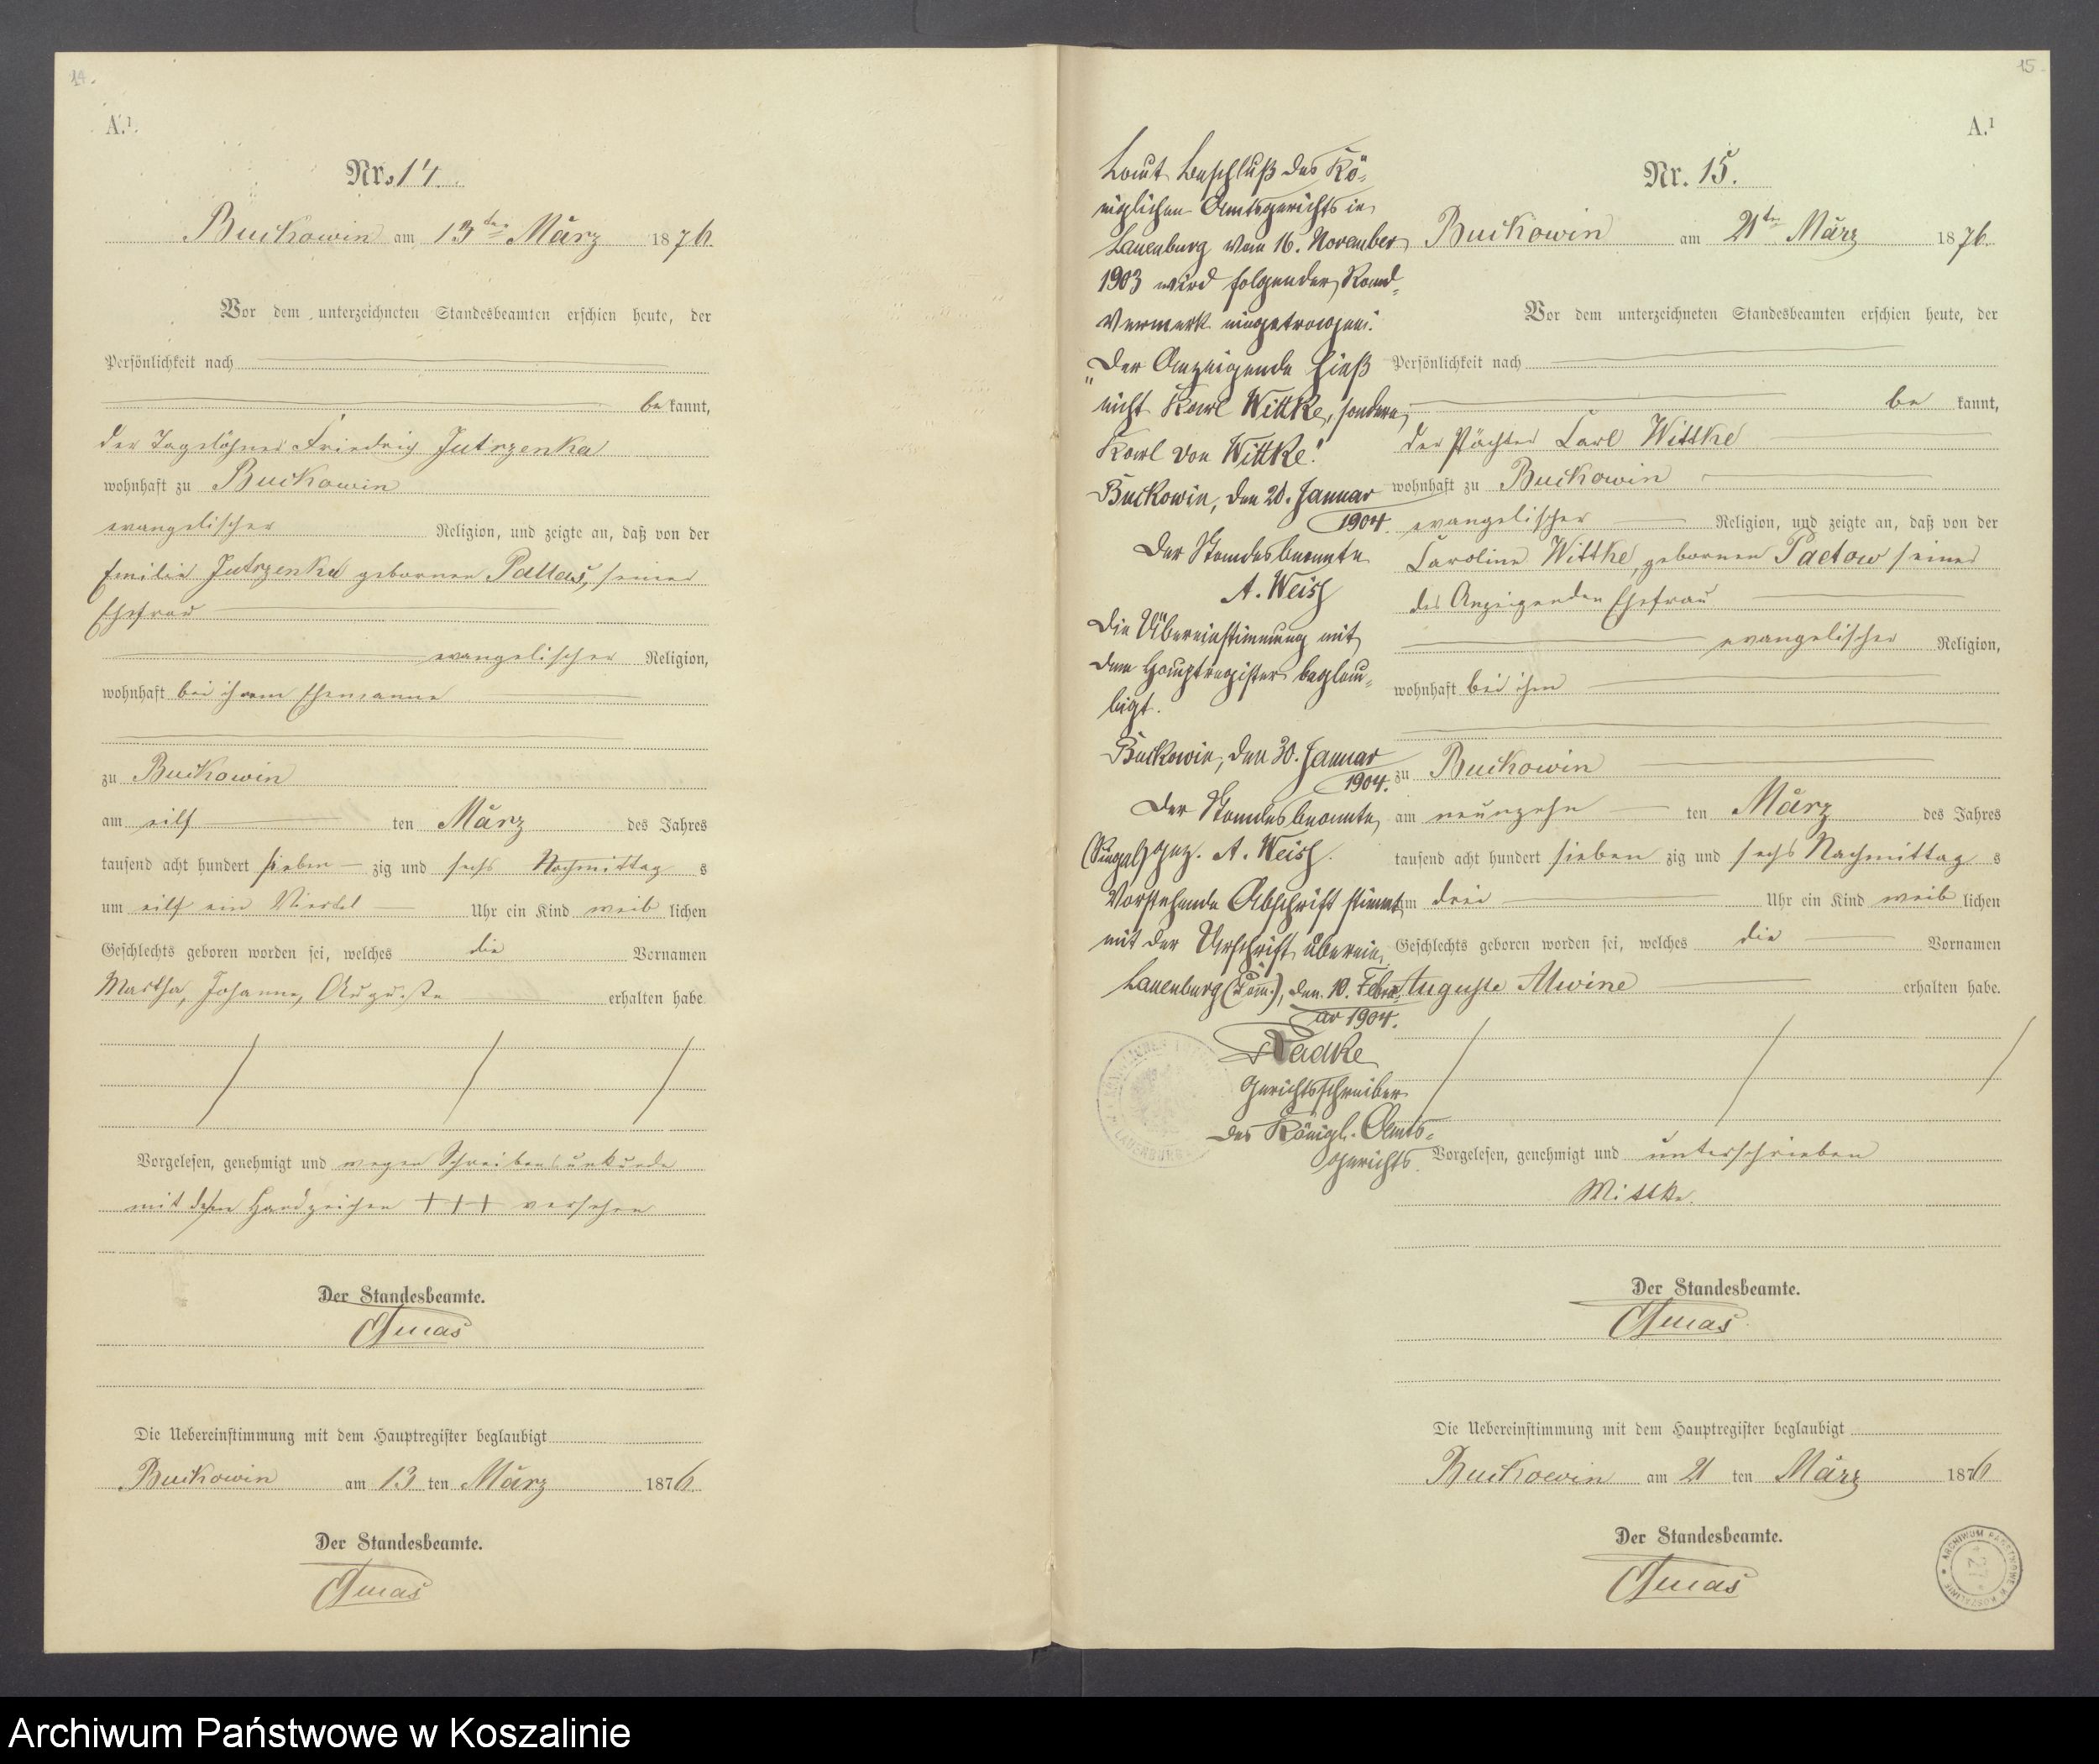 14.
A.¹
Nr. 14.
Buckowin am 13ten März 1876
Vor dem unterzeichneten Standesbeamten erschien heute, der
Persönlichkeit nach
be kannt,
der Tagelöhner Friedrich Jutrzenka
wohnhaft zu Buckowin
evangelischer Religion, und zeigte an, daß von der
Emilie Jutrzenka geborenen Pallas, seiner
Ehefrau
evangelischer Religion,
wohnhaft bei ihrem Ehemanne
zu Buckowin
am eilf ten März des Jahres
tausend acht hundert sieben zig und sechs Nachmittag s
um eilf ein Viertel Uhr ein Kind weib lichen
Geschlechts geboren worden sei, welches die Vornamen
Martha, Johanna, Auguste erhalten habe
Vorgelesen, genehmigt und wegen Schreibensunkunde
mit dem Handzeichen +++ versehen
Der Standesbeamte.
Die Uebereinstimmung mit dem Hauptregister beglaubigt
Buckowin am 13 ten März 1876
Der Standesbeamte.
15.
A.¹
Laut Beschluß des Kö-
niglichen Amtsgerichts in
Lauenburg vom 16. November
1903 wird folgender Rand-
vermerk eingetragen:
"Der Anzeigende hieß
nicht Karl Wittke, sondern
Karl von Wittke."
Buckowin, den 20. Januar
1904.
Der Standesbeamte
A. Weish
Die Übereinstimmung mit
dem Hauptregister beglau-
bigt.
Buckowin, den 30. Januar
1904.
Der Standesbeamte
(Siegel) gez. A. Weish.
Vorstehende Abschrift stimmt
mit der Urschrift überein.
Lauenburg (Pom.), den 10. Febru-
ar 1904.
Radke
Gerichtsschreiber
des Königl. Amts-
gerichts.
Nr. 15.
Buckowin am 21ten März 1876
Vor dem unterzeichneten Standesbeamten erschien heute, der
Persönlichkeit nach
be kannt,
der Pächter Carl Wittke
wohnhaft zu Buckowin
evangelischer Religion, und zeigte an, daß von der
Caroline Wittke, geborenen Paetow seiner
des Anzeigenden Ehefrau
evangelischer Religion,
wohnhaft bei ihm
zu Buckowin
am neunzehn ten März des Jahres
tausend acht hundert sieben zig und sechs Nachmittag s
um drei Uhr ein Kind weib lichen
Geschlechts geboren worden sei, welches die Vornamen
Auguste Alwine erhalten habe.
Vorgelesen, genehmigt und unterschrieben
Wittke.
Der Standesbeamte.
Die Uebereinstimmung mit dem Hauptregister beglaubigt
Buckowin am 21 ten März 1876
Der Standesbeamte.
ARCHIWUM PAŃSTWOWE W KOSZALINIE
27
Archiwum Państwowe w Koszalinie